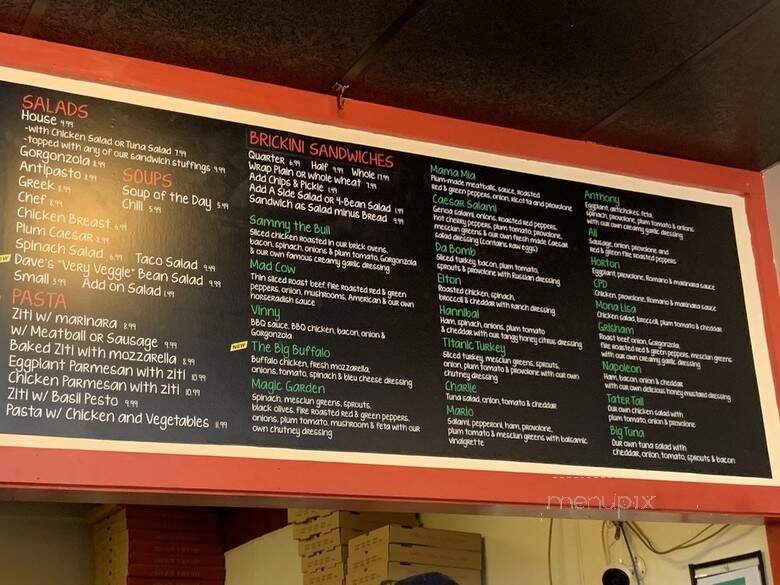 SALADS
House 9.99
-with Chicken Salad or Tuna Salad 7.99
-topped with any of our sandwich stuffings 9.99
Gorgonzola 8.99
Antipasto 8.99
Greek 8.99
Chef 8.99
Chicken Breast 6.99
Plum Caesar 8.99
Spinach Salad 6.99
Taco Salad 9.99
Dave's "Very Veggie" Bean Salad 9.99
Small 3.99 Add on Salad 1.99
SOUPS
Soup of the Day 5.49
Chili 5.99
PASTA
Ziti w/ marinara 8.99
w/ Meatball or Sausage 9.99
Baked Ziti with mozzarella 8.99
Eggplant Parmesan with ziti 10.99
Chicken Parmesan with ziti 10.99
Ziti w/ Basil Pesto 9.99
Pasta w/ Chicken and Vegetables 11.99
BRICKINI SANDWICHES
Quarter 6.99 Half 9.99 Whole 17.99
Wrap Plain or whole wheat 7.99
Add Chips & Pickle 1.99
Add A Side Salad or 4-Bean Salad 1.99
Sandwich as Salad minus Bread 9.99
Sammy the Bull
Sliced chicken roasted in our brick ovens,
bacon, spinach, onions & plum tomato, Gorgonzola
& our own famous creamy garlic dressing
Mad Cow
Thin sliced roast beef, fire roasted red & green
peppers, onion, mushrooms, American & our own
horseradish sauce
Vinny
BBQ sauce, BBQ chicken, bacon, onion &
Gorgonzola
NEW
The Big Buffalo
Buffalo chicken, fresh mozzarella,
onions, tomato, spinach & bleu cheese dressing
Magic Garden
Spinach, mesclun greens, sprouts,
black olives, fire roasted red & green peppers,
onions, plum tomato, mushroom & feta with our
own chutney dressing
Mama Mia
Plum-made meatballs, sauce, roasted
red & green peppers, onion, ricotta and provolone
Caesar Salami
Genoa salami, onions, roasted red peppers,
hot cherry peppers, plum tomato, provolone,
mesclun greens & our own fresh made Caesar
salad dressing (contains raw eggs)
Da Bomb
Sliced turkey, bacon, plum tomato,
sprouts & provolone with Russian dressing
Elton
Roasted chicken, spinach,
broccoli & cheddar with ranch dressing
Hannibal
Ham, spinach, onions, plum tomato
& cheddar with our tangy honey citrus dressing
Titanic Turkey
Sliced turkey, mesclun greens, sprouts,
onion, plum tomato & provolone with our own
chutney dressing
Charlie
Tuna salad, onion, tomato & cheddar
Mario
Salami, pepperoni, ham, provolone,
plum tomato & mesclun greens with balsamic
vinaigrette
Anthony
Eggplant, artichokes, feta,
spinach, provolone, plum tomato & onions
with our own creamy garlic dressing
Ali
Sausage, onion, provolone and
red & green fire roasted peppers
Horton
Eggplant, provolone, Romano & marinara sauce
CPD
Chicken, provolone, Romano & marinara sauce
Mona Lisa
Chicken salad, broccoli, plum tomato & cheddar
Grisham
Roast beef, onion, Gorgonzola,
fire roasted red & green peppers, mesclun greens
with our own creamy garlic dressing
Napoleon
Ham, bacon, onion & cheddar
with our own delicious honey mustard dressing
Tater Tall
Our own chicken salad with
plum tomato, onion & provolone
Big Tuna
Our own tuna salad with
cheddar, onion, tomato, sprouts & bacon
menupix